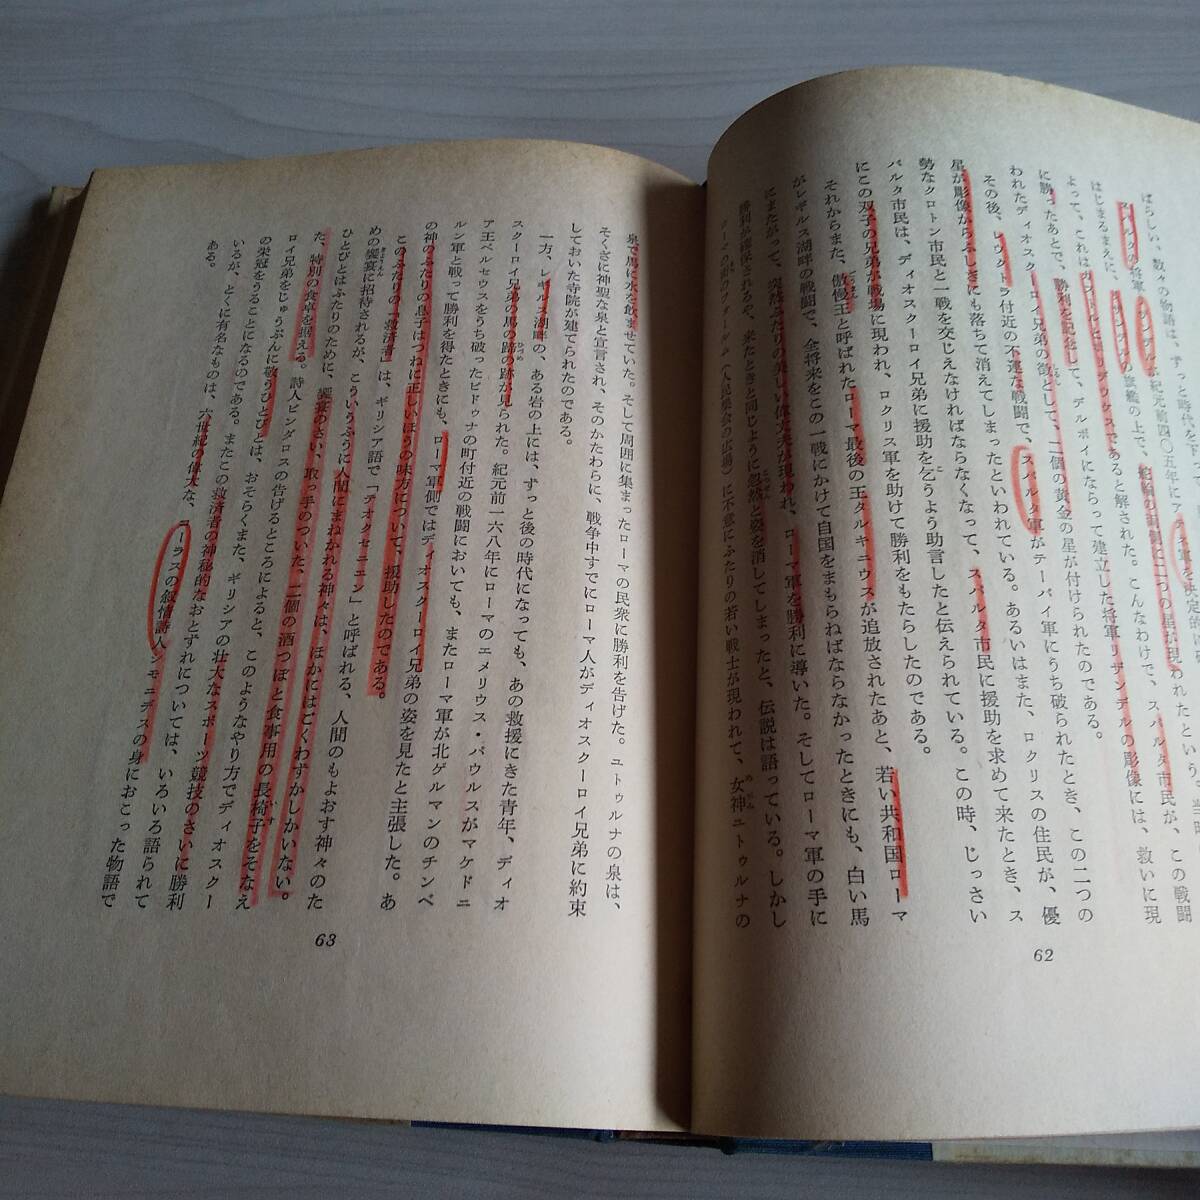 ばらしい、数々の物語は、ずっと時代を下
スパルタの将軍リサンデルは紀元前四〇五年にアテネ軍を決定的
はじまるまえに、リサンデルの旗艦の上で、船首の両側に二つの星が現われたという。
よって、これはカストルとポリデウケスであると解された。こんなわけで、スパルタ市民が、この戦闘
に勝ったあとで、勝利を記念して、デルポイにならって建立した将軍リザンデルの彫像には、救いに現
われたディオスクーロイ兄弟の徴として、二個の黄金の星が付けられたのである。
その後、レウクトラ付近の不運な戦闘で、スパルタ軍がテーバイ軍にうち破られたとき、この二つの
星が彫像からふしぎにも落ちて消えてしまったといわれている。あるいはまた、ロクリスの住民が、優
勢なクロトン市民と一戦を交じえなければならなくなって、スパルタ市民に援助を求めて来たとき、ス
パルタ市民は、ディオスクーロイ兄弟に援助を乞うよう助言したと伝えられている。この時、じっさい
にこの双子の兄弟が戦場に現われ、ロクリス軍を助けて勝利をもたらしたのである。
それからまた、傲慢王と呼ばれたローマ最後の王タルキニウスが追放されたあと、若い共和国ローマ
がレギルス湖畔の戦闘で、全将来をこの一戦にかけて自国をまもらねばならなかったときにも、白い馬
にまたがって、突然ふたりの美しい偉丈夫が現われ、ローマ軍を勝利に導いた。そしてローマ軍の手に
勝利が確保されるや、来たときと同じように忽然と姿を消してしまったと、伝説は語っている。しかし
ローマの街のフォールム(人民集会の広場)に不意にふたりの若い戦士が現われて、女神ユトゥルナの
62
泉で馬に水を飲ませていた。そして周囲に集まったローマの民衆に勝利を告げた。ユトゥルナの泉は、
そくざに神聖な泉と宣言され、そのかたわらに、戦争中すでにローマ人がディオスクーロイ兄弟に約束
しておいた寺院が建てられたのである。
一方、レギルス湖畔の、ある岩の上には、ずっと後の時代になっても、あの救援にきた青年、ディオ
スクーロイ兄弟の馬の蹄の跡が見られた。紀元前一六八年にローマのエメリウス・パウルスがマケドニ
ア王ペルセウスをうち破ったピドゥナの町付近の戦闘においても、またローマ軍が北ゲルマンのチンベ
ルン軍と戦って勝利を得たときにも、ローマ軍側ではディオスクーロイ兄弟の姿を見たと主張した。あ
の神のふたりの息子はつねに正しいほうの味方について、援助したのである。
このふたりの〝救済者〟は、ギリシア語で「テオクセニエン」と呼ばれる、人間のもよおす神々のた
めの饗宴に招待されるが、こういうふうに人間にまねかれる神々は、ほかにはごくわずかしかいない。
ひとびとはふたりのために、饗宴のさい、取っ手のついた、二個の酒つぼと食事用の長椅子をそなえ
た、特別の食卓を据える。詩人ピンダロスの告げるところによると、このようなやり方でディオスクー
ロイ兄弟をじゅうぶんに敬うひとびとは、おそらくまた、ギリシアの壮大なスポーツ競技のさいに勝利
の栄冠をうることになるのである。またこの救済者の神秘的なおとずれについては、いろいろ語られて
いるが、とくに有名なものは、六世紀の偉大な、コーラスの叙情詩人シモニデスの身におこった物語で
ある。
63